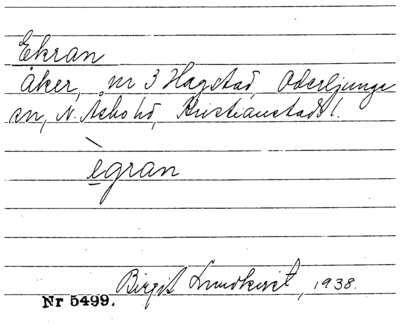 Ekran
åker, nr 3 Hagstad, Oderljunga
sn, N. Åsbo hd, Kristianstads l.
ègran
Birgit Lundkvist, 1938.
Nr 5499.